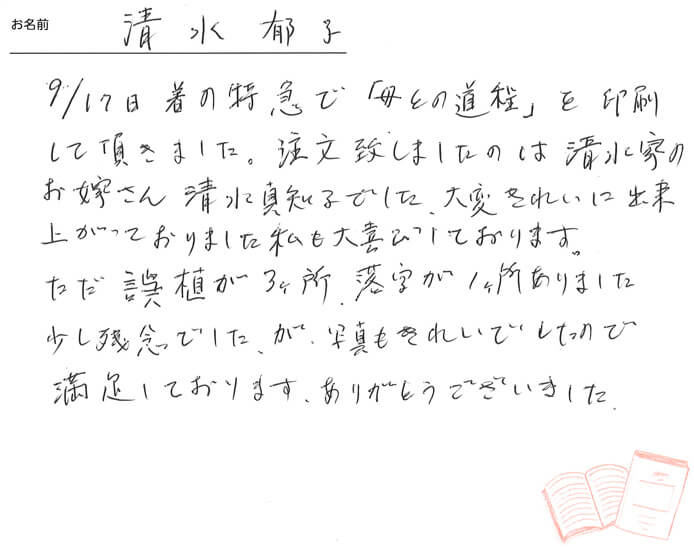 お名前 清水郁子
9/17日着の特急で「母との道程」を印刷
して頂きました。注文致しましたのは清水家の
お嫁さん清水真知子でした、大変きれいに出来
上がっておりました私も大喜びしております。
ただ誤植が3ヶ所、落字が1ヶ所ありました
少し残念でした、が、写真もきれいでしたので
満足しております、ありがとうございました、